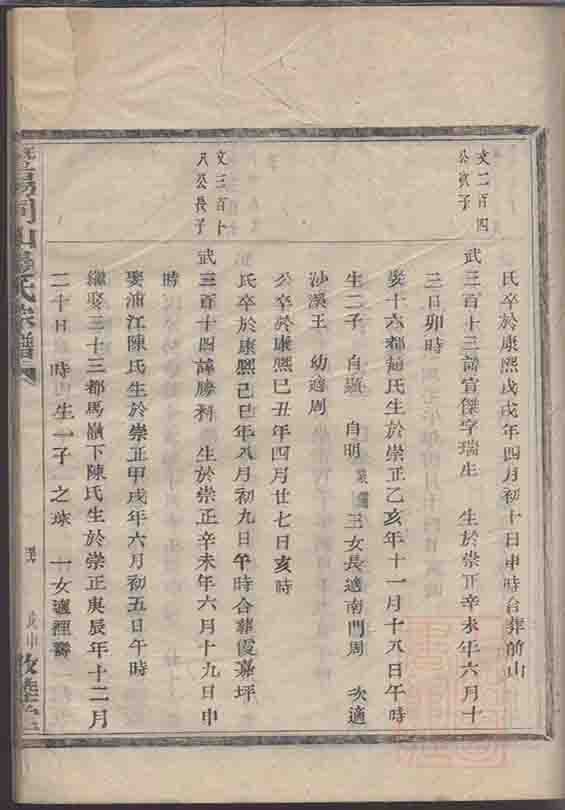 氏卒於康熙戊戌年四月初十日申時合葬前山
文二百四
公寅子
武三百十三諱宣傑字瑞生 生於崇正辛未年六月十
三日卯時
娶十六都趙氏生於崇正乙亥年十一月十八日午時
生二子 自顯 自明 三女長適南門周 次適
沙溪王 幼適周
公卒於康熙己丑年四月廿七日亥時
氏卒於康熙己巳年八月初九日午時合葬霞嘉坪
文三百十
八公長子
武三百十四諱勝科 生於崇正辛未年六月十九日申
時
娶浦江陳氏生於崇正甲戌年六月初五日午時
繼娶三十三都馬嶺下陳氏生於崇正庚辰年十二月
二十日 時 生一子 之球 一女適裡壽
氏宗譜